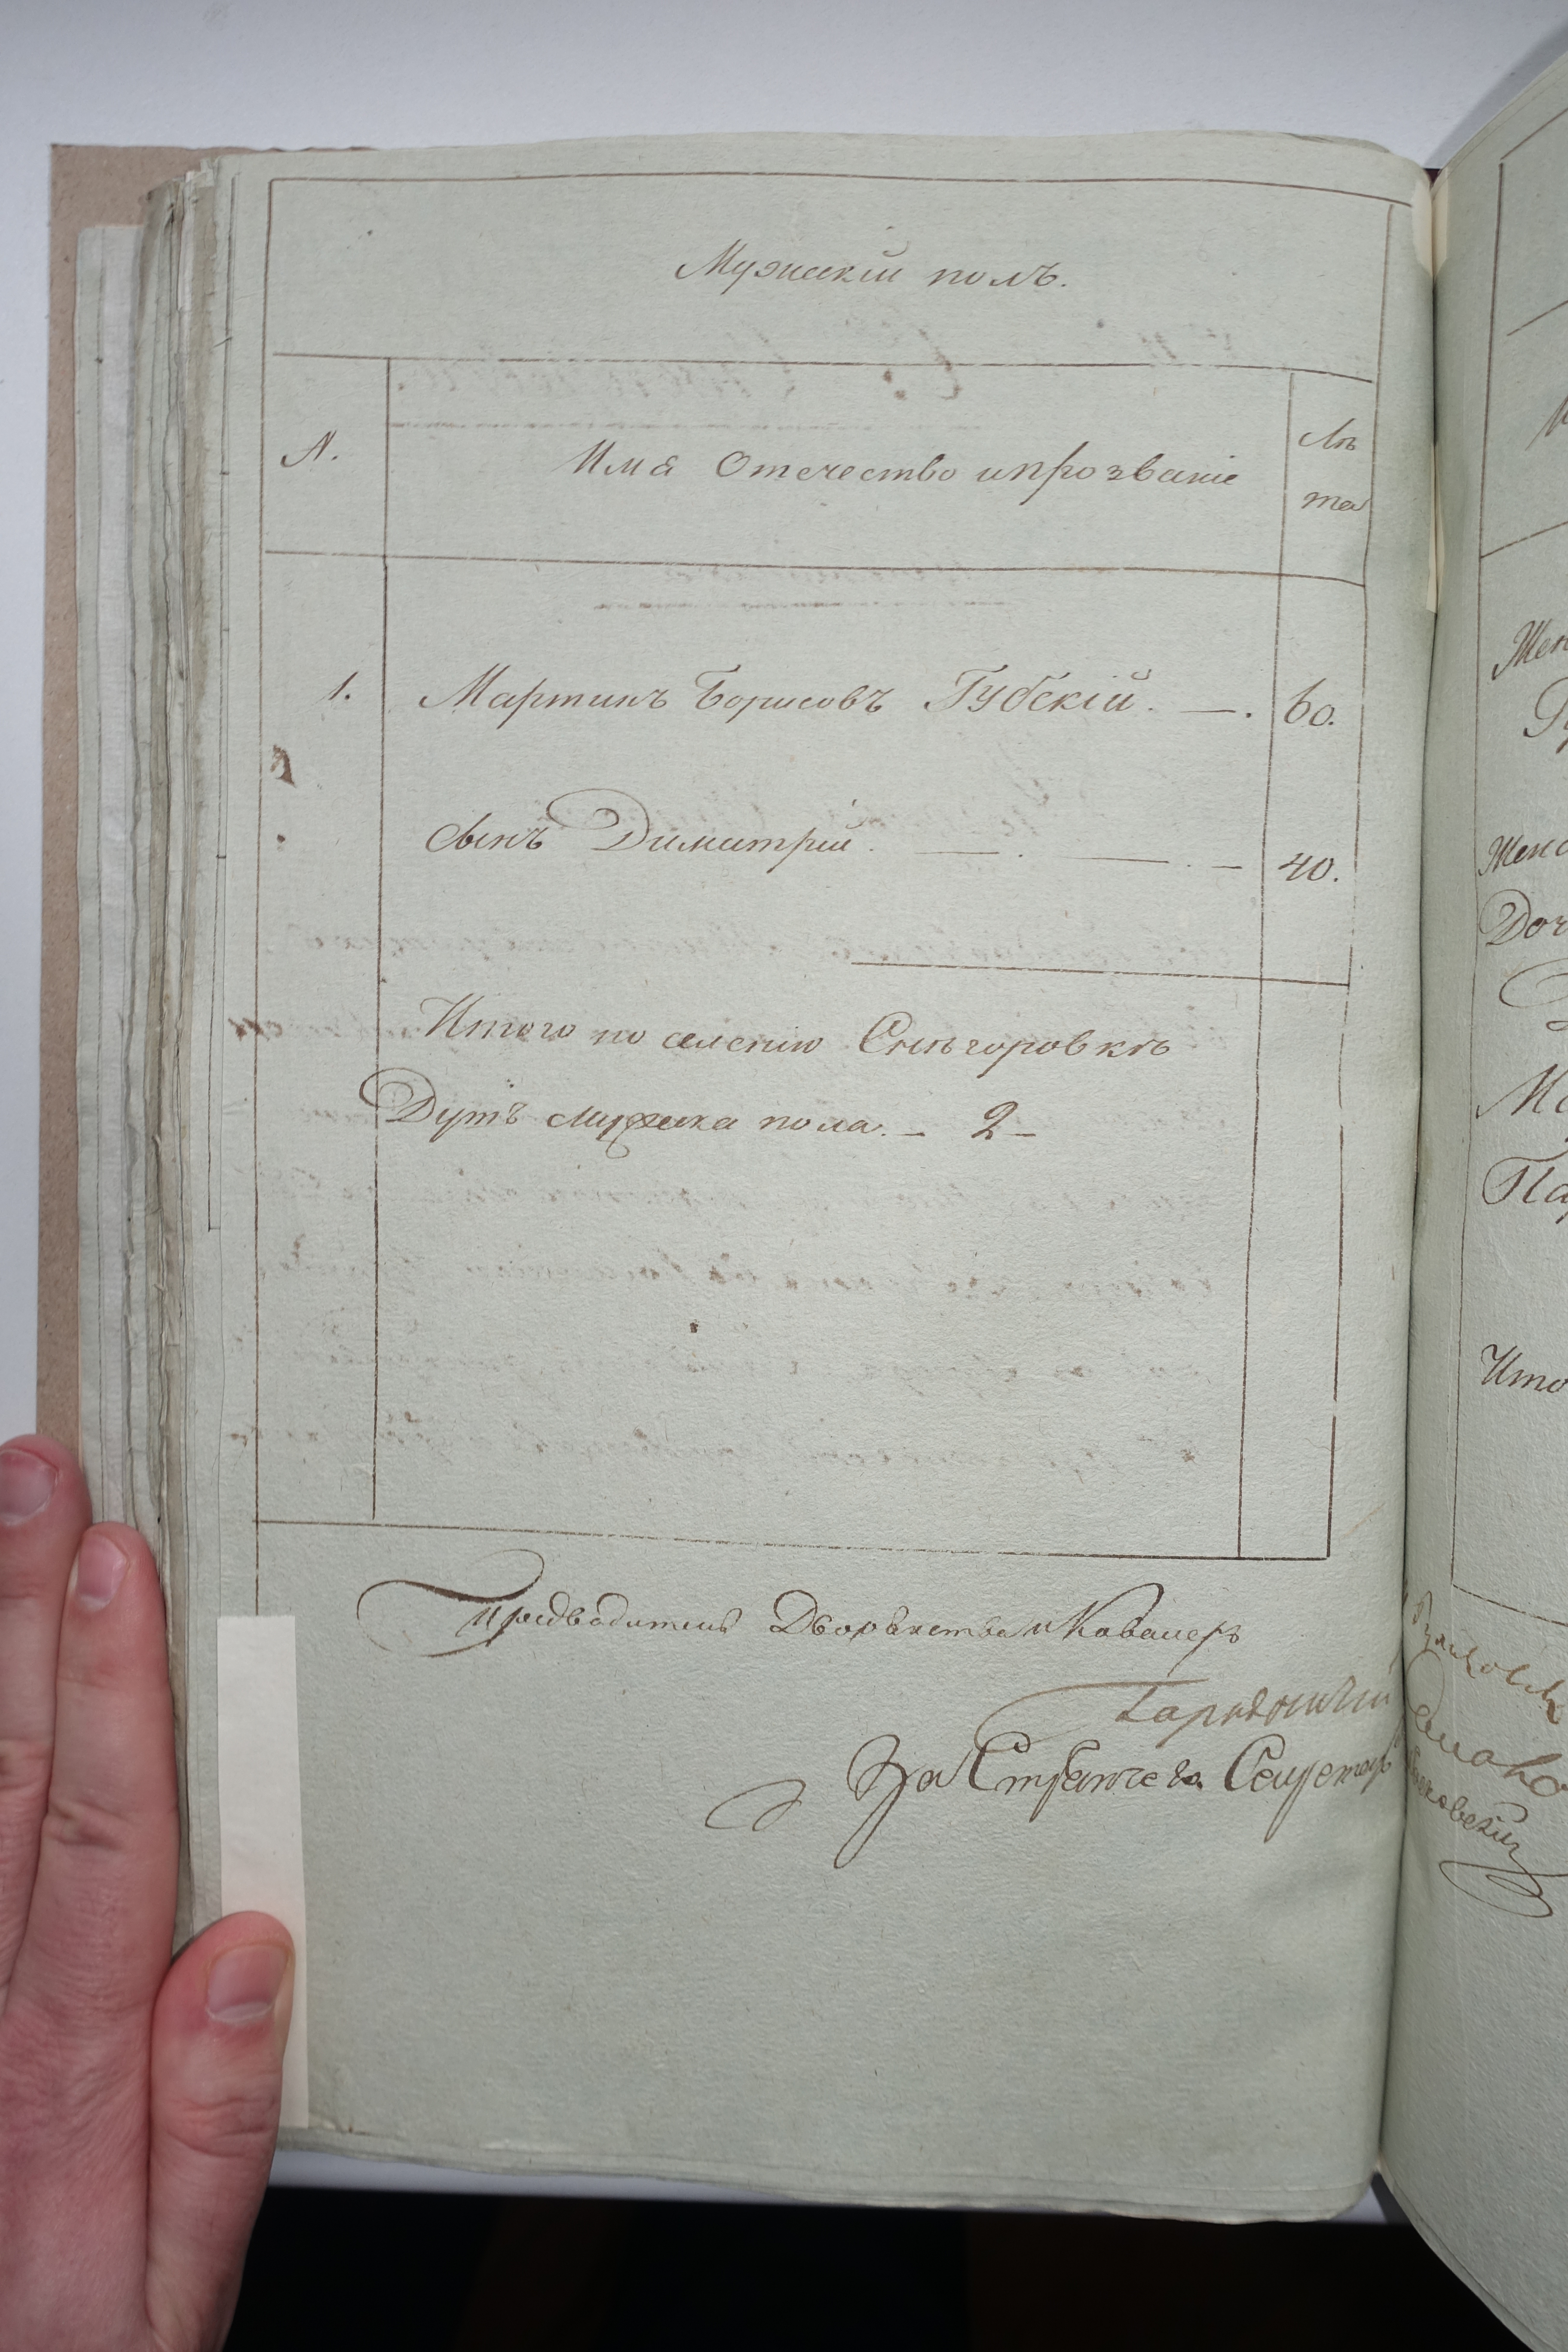 Мужскій полъ.
N.
Имя Отечество и прозваніе
Лѣ
та
1. Мартинъ Борисовъ Губскій. —. 60.
сынъ Димитрій. — . — . — 40.
Итого по селенію Снѣгоровкѣ
Душъ мужеска пола. — 2 —
Предводитель Дворянства и Кавалеръ
За Стряпчего Секретарь
Жен
Жена
Доч
Ма
Пар
Ито